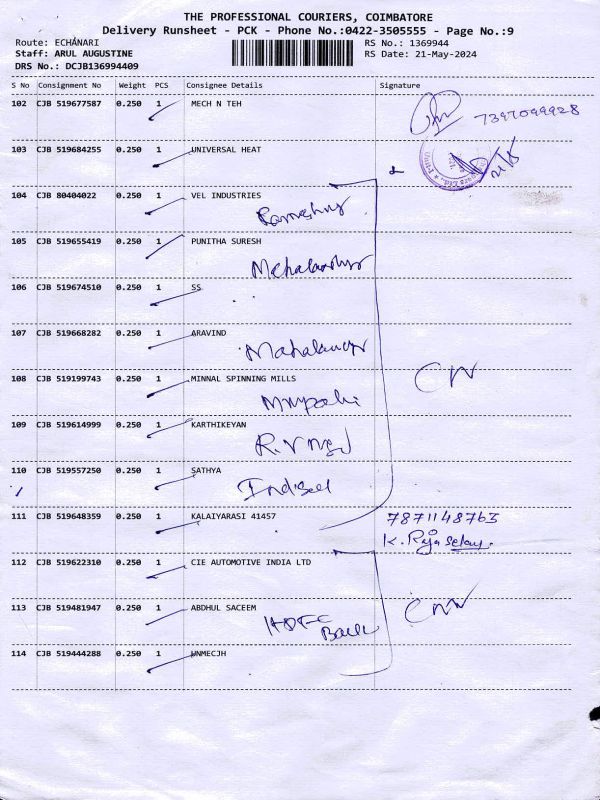 THE PROFESSIONAL COURIERS, COIMBATORE
Delivery Runsheet - PCK - Phone No.:0422-3505555 - Page No.:9
Route: ECHANARI RS No.: 1369944
Staff: ARUL AUGUSTINE RS Date: 21-May-2024
DRS No.: DCJB136994409
S No Consignment No Weight PCS Consignee Details Signature
102 CJB 519677587 0.250 1 MECH N TEH
7397099928
103 CJB 519684255 0.250 1 UNIVERSAL HEAT
104 CJB 80404022 0.250 1 VEL INDUSTRIES
105 CJB 519655419 0.250 1 PUNITHA SURESH
106 CJB 519674510 0.250 1 SS
107 CJB 519668282 0.250 1 ARAVIND
108 CJB 519199743 0.250 1 MINNAL SPINNING MILLS
109 CJB 519614999 0.250 1 KARTHIKEYAN
110 CJB 519557250 0.250 1 SATHYA
111 CJB 519648359 0.250 1 KALAIYARASI 41457
7871148763
K. Rajaselay.
112 CJB 519622310 0.250 1 CIE AUTOMOTIVE INDIA LTD
113 CJB 519481947 0.250 1 ABDHUL SACEEM
HDFC
Bank
114 CJB 519444288 0.250 1 UNMECJH